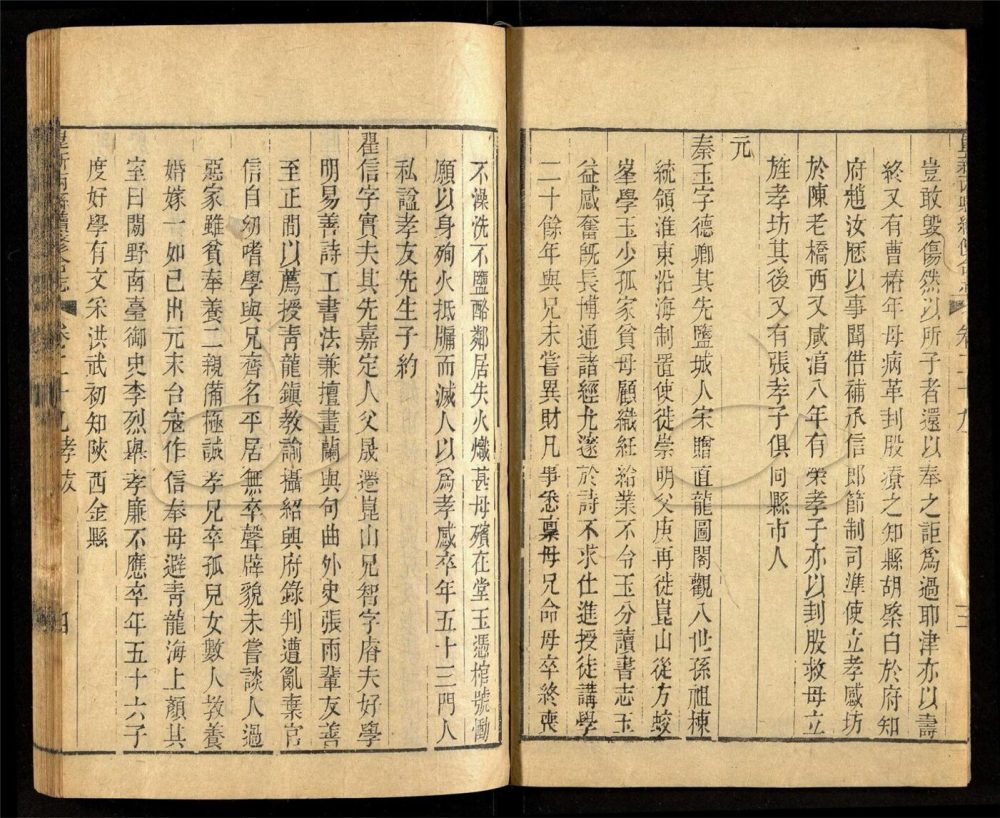 豈敢毀傷然以所子者還以奉之詎爲過耶津亦以壽
終又有曹椿年母病革刲股療之知縣胡桊白於府知
府趙汝歷以事聞借補承信郎節制司準使立孝感坊
於陳老橋西又咸淳八年有榮孝子亦以刲股救母立
旌孝坊其後又有張孝子俱同縣市人
元
秦玉字德卿其先鹽城人宋贈直龍圖閣觀八世孫祖棟
統領淮東沿海制置使徙崇明父庚再徙崑山從方蛟
峯學玉少孤家貧母顧織紝給業不令玉分讀書志玉
益感奮旣長博通諸經尤邃於詩不求仕進授徒講學
二十餘年與兄未嘗異財凡事悉稟母兄命母卒終喪
不澡洗不鹽酪鄰居失火熾甚母殯在堂玉憑棺號慟
願以身殉火抵牖而滅人以爲孝感卒年五十三門人
私諡孝友先生子約
瞿信字實夫其先嘉定人父晟遷崑山兄智字睿夫好學
明易善詩工書法兼擅畫蘭與句曲外史張雨輩友善
至正間以薦授靑龍鎭教諭攝紹興府錄判遭亂棄官
信自幼嗜學與兄齊名平居無卒聲牌貌未嘗談人過
惡家雖貧奉養二親備極誠孝兄卒孤兒女數人教養
婚嫁一如己出元末台寇作信奉母避靑龍海上顏其
室曰閒野南臺御史李烈舉孝廉不應卒年五十六子
度好學有文采洪武初知陝西金縣
崑新兩縣續修合志 卷二十九孝友 四